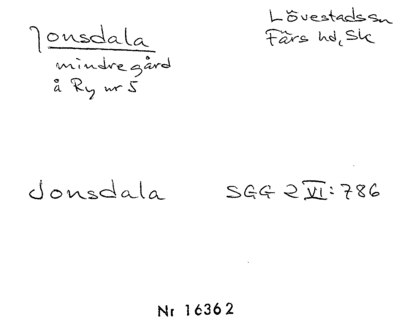 Jonsdala
Lövestadssn
Färs hd, Sk
mindre gård
å Ry nr 5
Jonsdala SGG 2 VI: 786
Nr 16362